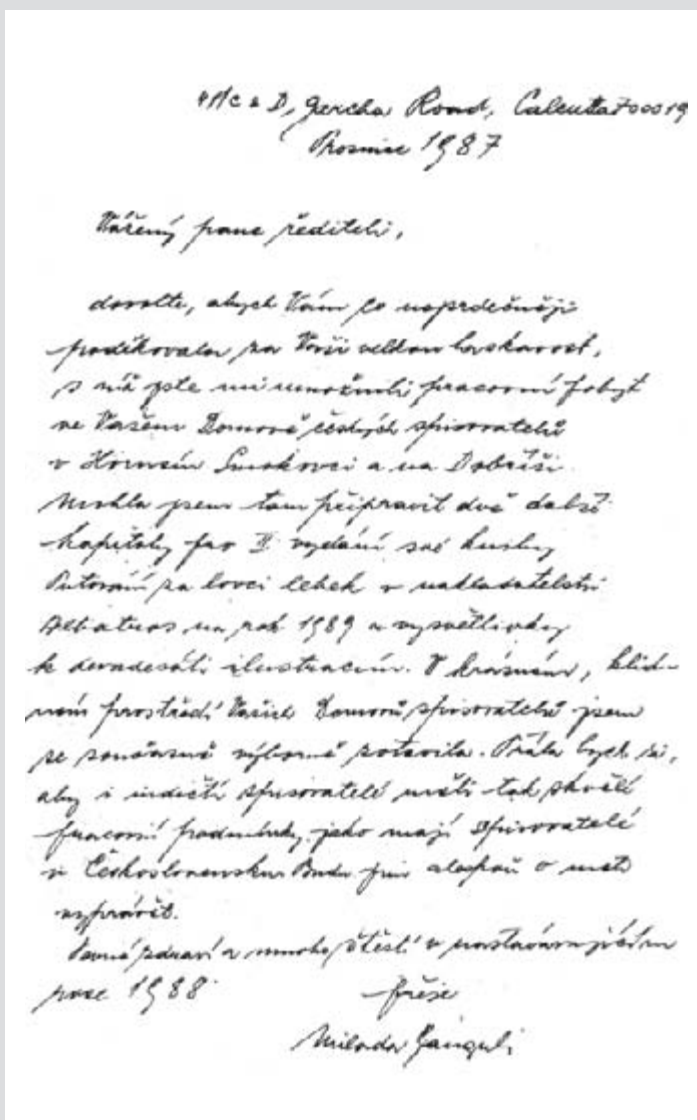 41/c & D, Gorcha Road, Calcutta 700019
Prosinec 1987
Vážený pane řediteli,
dovolte, abych Vám co nejsrdečněji
poděkovala za Vaši velkou laskavost,
s níž jste mi umožnili pracovní pobyt
ve Vašem Domově českých spisovatelů
v Horním Smokovci a na Dobříši.
Mohla jsem tam připravit dvě další
kapitoly pro II vydání své knihy
Putování za lovci lebek v nakladatelství
Albatros na rok 1989 a vysvětlivky
k devadesáti ilustracím. V krásném, klid-
ném prostředí Vašich Domovů spisovatelů jsem
se současně výborně zotavila. Přála bych si,
aby i indičtí spisovatelé měli tak skvělé
pracovní podmínky, jako mají spisovatelé
v Československu. Budu jim alespoň o nich
vyprávět.
zdraví a mnoho štěstí v nastávajícím
roce 1988
přeje
Milada Ganguli